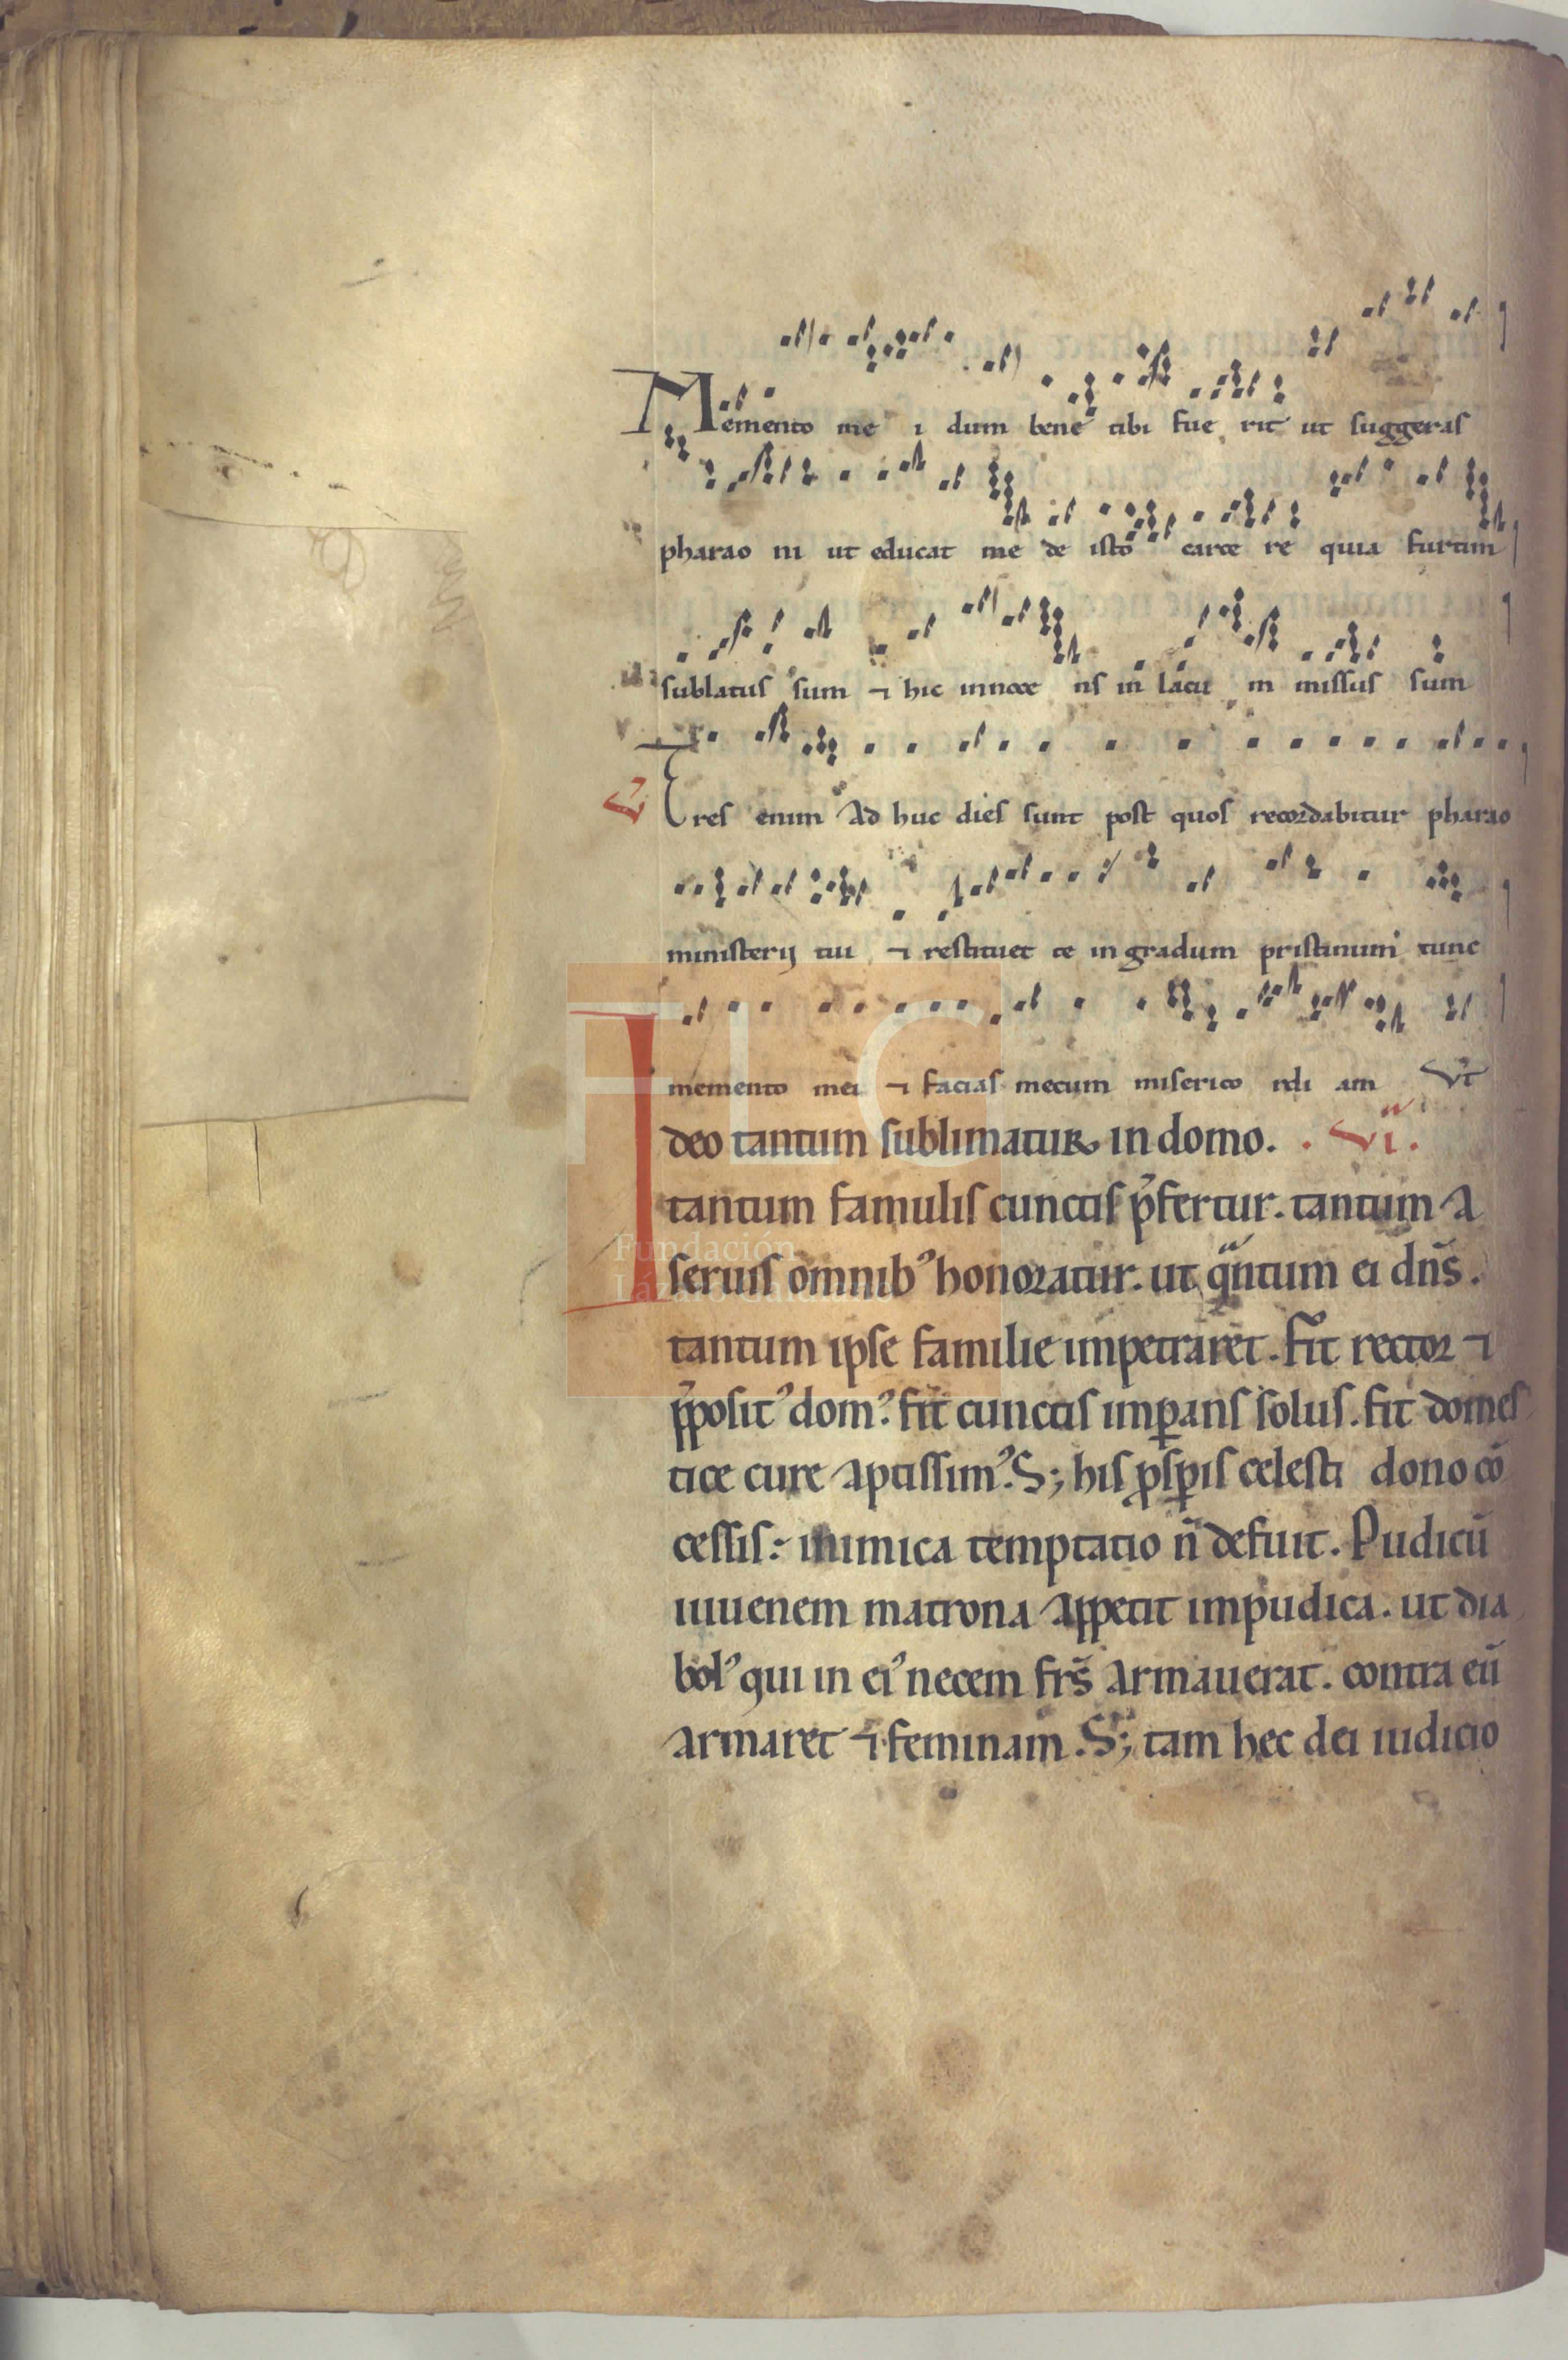 Memento me i dum bene tibi fue rit ut suggeras
pharao ni ut educat me de isto carce re quia furtim
sublatus sum ⁊ hic innoce ns in lacu m missus sum
V Tres enim ad huc dies sunt post quos recordabitur pharao
ministerij tui ⁊ restituet te in gradum pristinum tunc
memento mei ⁊ facias mecum miserico rdi am Vt
Ideo tantum sublimatur in domo. . VI.
tantum famulis cunctis p̄fertur. tantum a
seruis omnibꝰ honoratur. ut qͣntum ei dn̄s.
tantum ipse familie impetraret. Fit rector ⁊
p̄positꝰ domꝰ. fit cunctis imꝑans solus. fit domes
tice cure aptissimꝰ. S; his ꝓsꝑis celesti dono cō
cessis: inimica temptatio n̄ defuit. Pudicū
iuuenem matrona appetit impudica. ut dia
bolꝰ qui in eiꝰ necem frs̄ armauerat. contra eū
armaret ⁊ feminam. S; tam hec dei iudicio
FLG
Fundación
Lázaro Galdiano